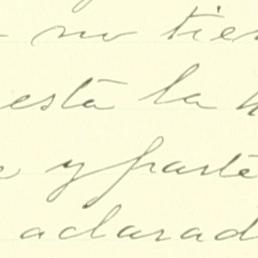 no tien
está la h
y parte
aclarad